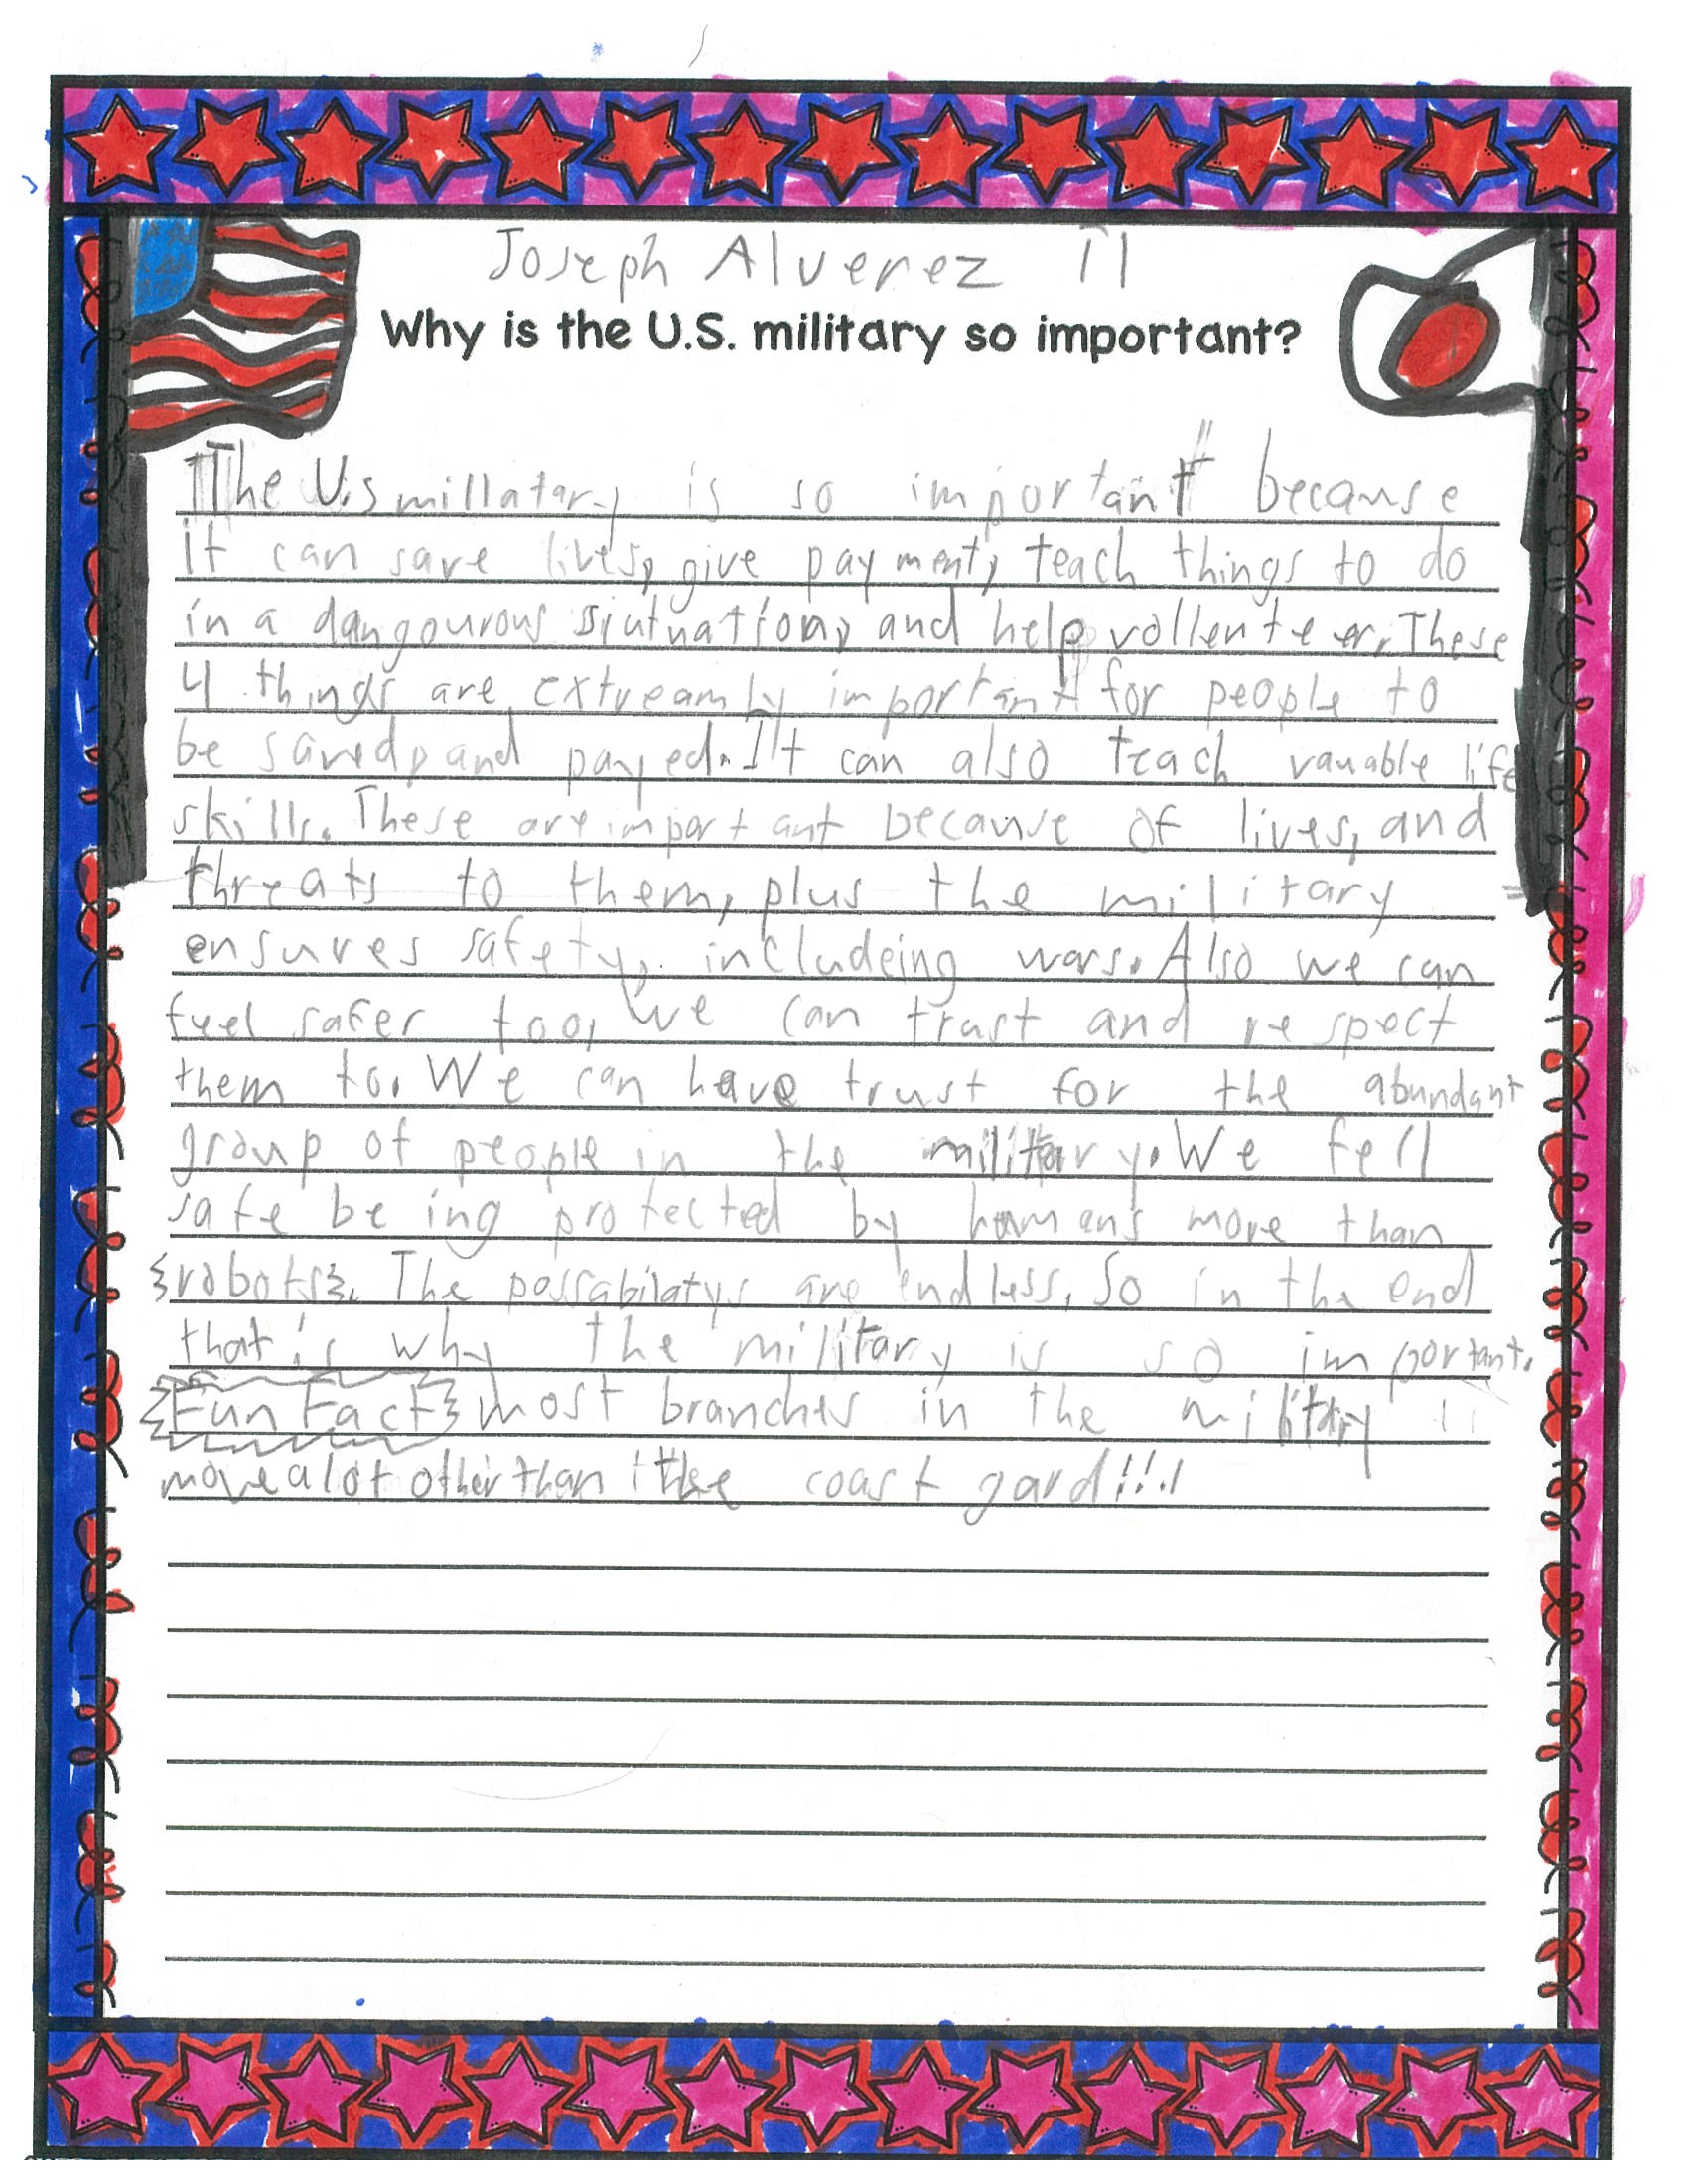 Joseph Alverez II
Why is the U.S. military so important?
The U.S millatary is so important because
it can save lives, give payment, teach things to do
in a dangourous siutuation, and help vollenteer. These
4 things are extreamly important for people to
be saved, and payed. It can also teach vauable life
skills. These are important because of lives, and
threats to them, plus the military
ensures safety, includeing wars. Also we can
feel safer too, we can trust and respect
them to. We can have trust for the abundant
group of people in the military. We fell
safe being protected by humans more than
robots. The possabilatys are endless. So in the end
that's why the military is so important.
Fun Fact most branches in the military
move a lot other than the coast gard!!!